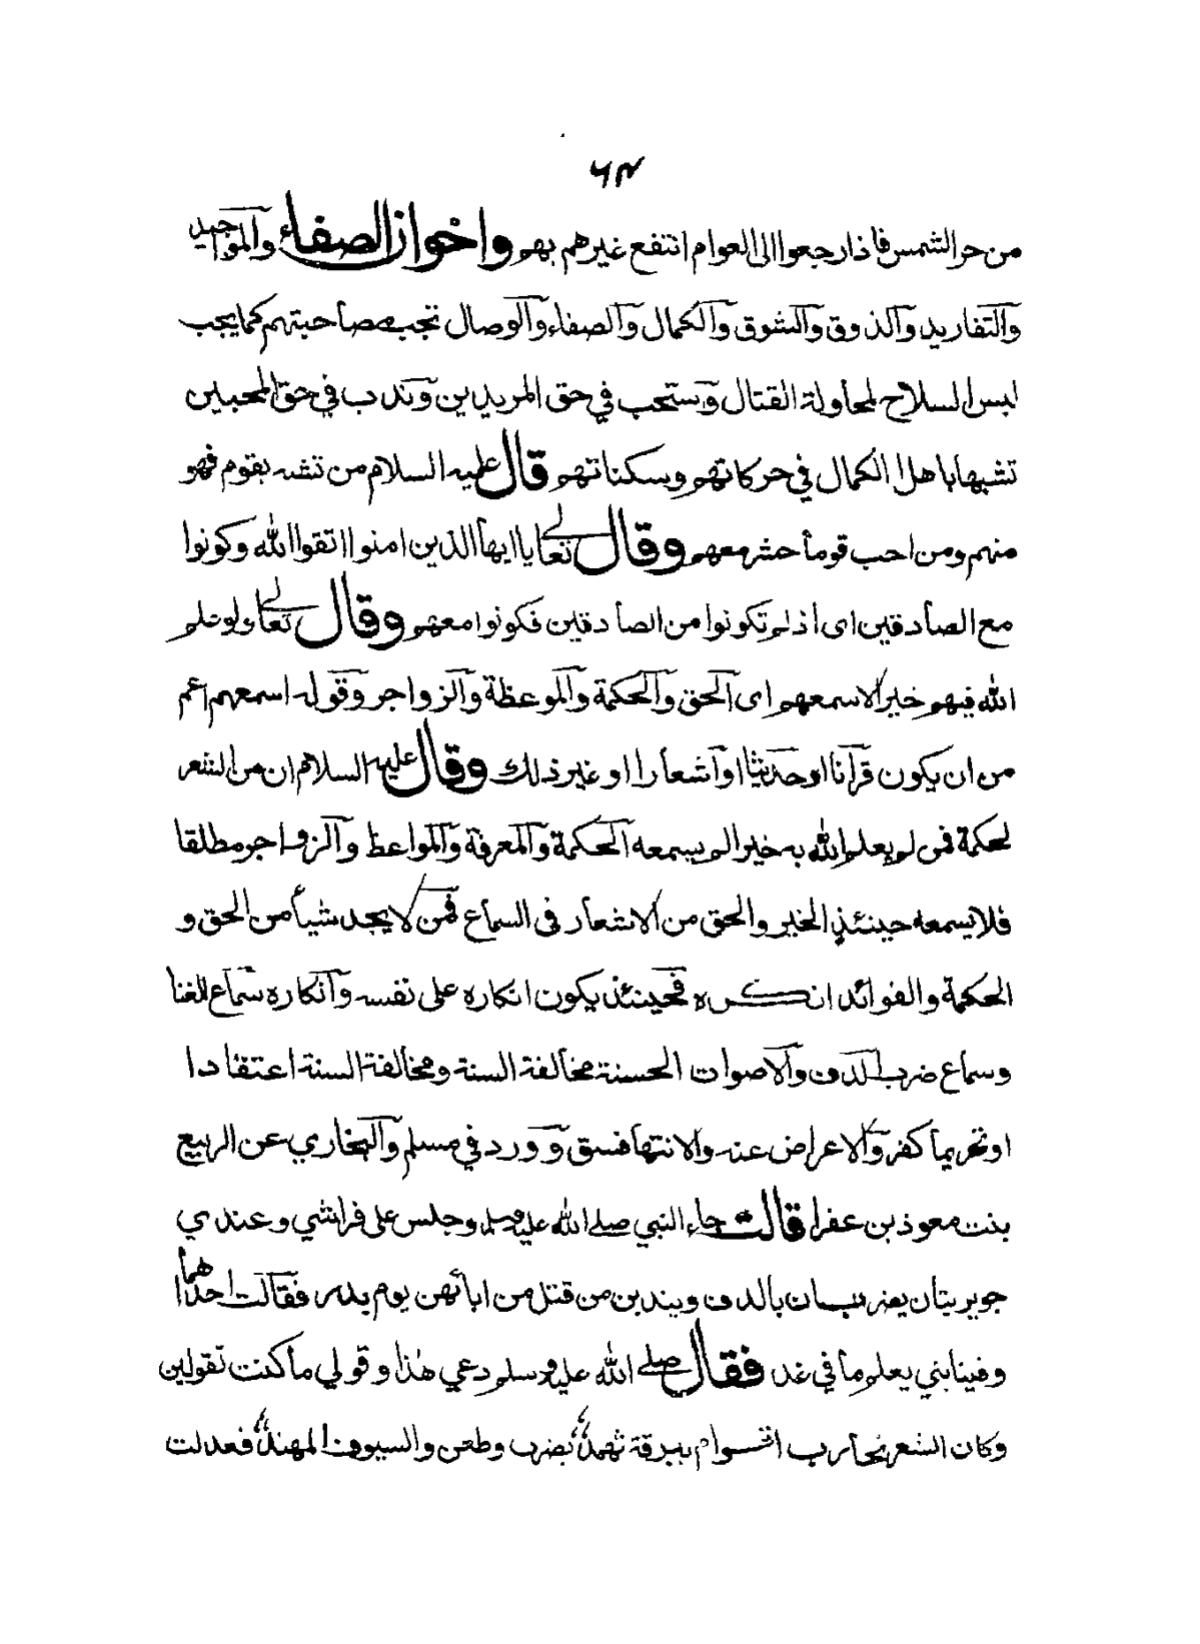 ٦٣
من حر الشمس فاذا رجعوا الى العوام انتفع غيرهم بهم واخوان الصفاء والمواجيد
والتفاريد والذوق والشوق والكمال والصفاء والوصال تجب مصاحبتهم كما يجب
لبس السلاح لمحاولة القتال ويستحب في حق المريدين وندب في حق المحبين
تشبها باهل الكمال في حركاتهم وسكناتهم قال عليه السلام من تشبه بقوم فهو
منهم ومن احب قوما حشر معهم وقال تعالى يا ايها الذين امنوا اتقوا الله وكونوا
مع الصادقين اى اذ لم تكونوا من الصادقين فكونوا معهم وقال تعالى ولو علم
الله فيهم خيرا لاسمعهم اى الحق والحكمة والموعظة والزواجر وقوله اسمعهم اعم
من ان يكون قرآنا او حديثا او اشعارا او غير ذلك وقال عليه السلام ان من الشعر
لحكمة فمن لم يعلم الله به خيرا لم يسمعه الحكمة والمعرفة والمواعظ والزواجر مطلقا
فلا يسمعه حينئذ الخير والحق من الاشعار فى السماع فمن لا يجد شيأ من الحق و
الحكمة والفوائد انكره فحينئذ يكون انكاره على نفسه وانكاره سماع الغنا
وسماع ضرب الدف والاصوات الحسنة مخالفة السنة ومخالفة السنة اعتقادا
او تحريما كفر والاعراض عنه والانتها فسق وورد في مسلم والبخاري عن الربيع
بنت معوذ بن عفرا قالت جاء النبي صلى الله عليه وسلم وجلس على فراشي وعندي
جويريتان يضربان بالدف ويندبن من قتل من ابائهن يوم بدر فقالت احداهما
وفينا نبي يعلم ما في غد فقال صلى الله عليه وسلم دعي هذا وقولي ما كنت تقولين
وكان الشعر نحارب اقوام ببرقة ثهمد بضرب وطعن والسيوف المهند فعدلت